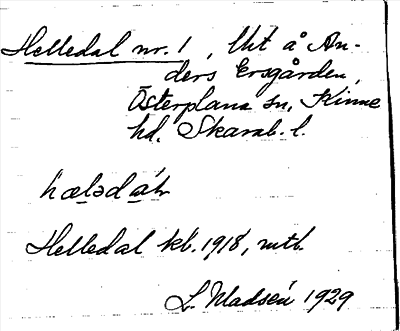 Helledal nr. 1, Utt å An-
ders Ersgården,
Österplana sn, Kinne
hd. Skarab. l.
hælədaɫ
Helledal kb. 1918, mtb.
1929